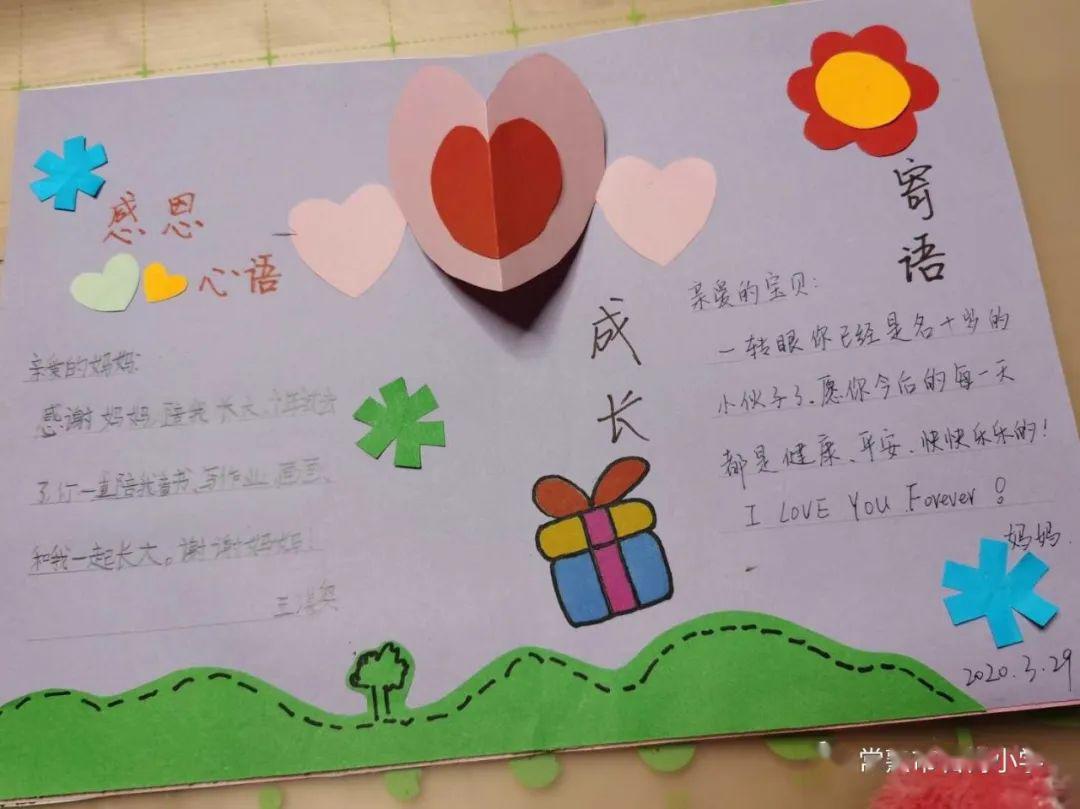 感恩
心语
亲爱的妈妈:
感谢妈妈,陪我长大,十年过去
了,们一直陪我读书、写作业、画画、
和我一起长大。谢谢妈妈!
王
成
长
寄
语
亲爱的宝贝:
一转眼你已经是名十岁的
小伙子了。愿你今后的每一天
都是健康、平安、快快乐乐的!
I LOVE You Forever!
妈妈.
2020.3.29
常熟市 小学